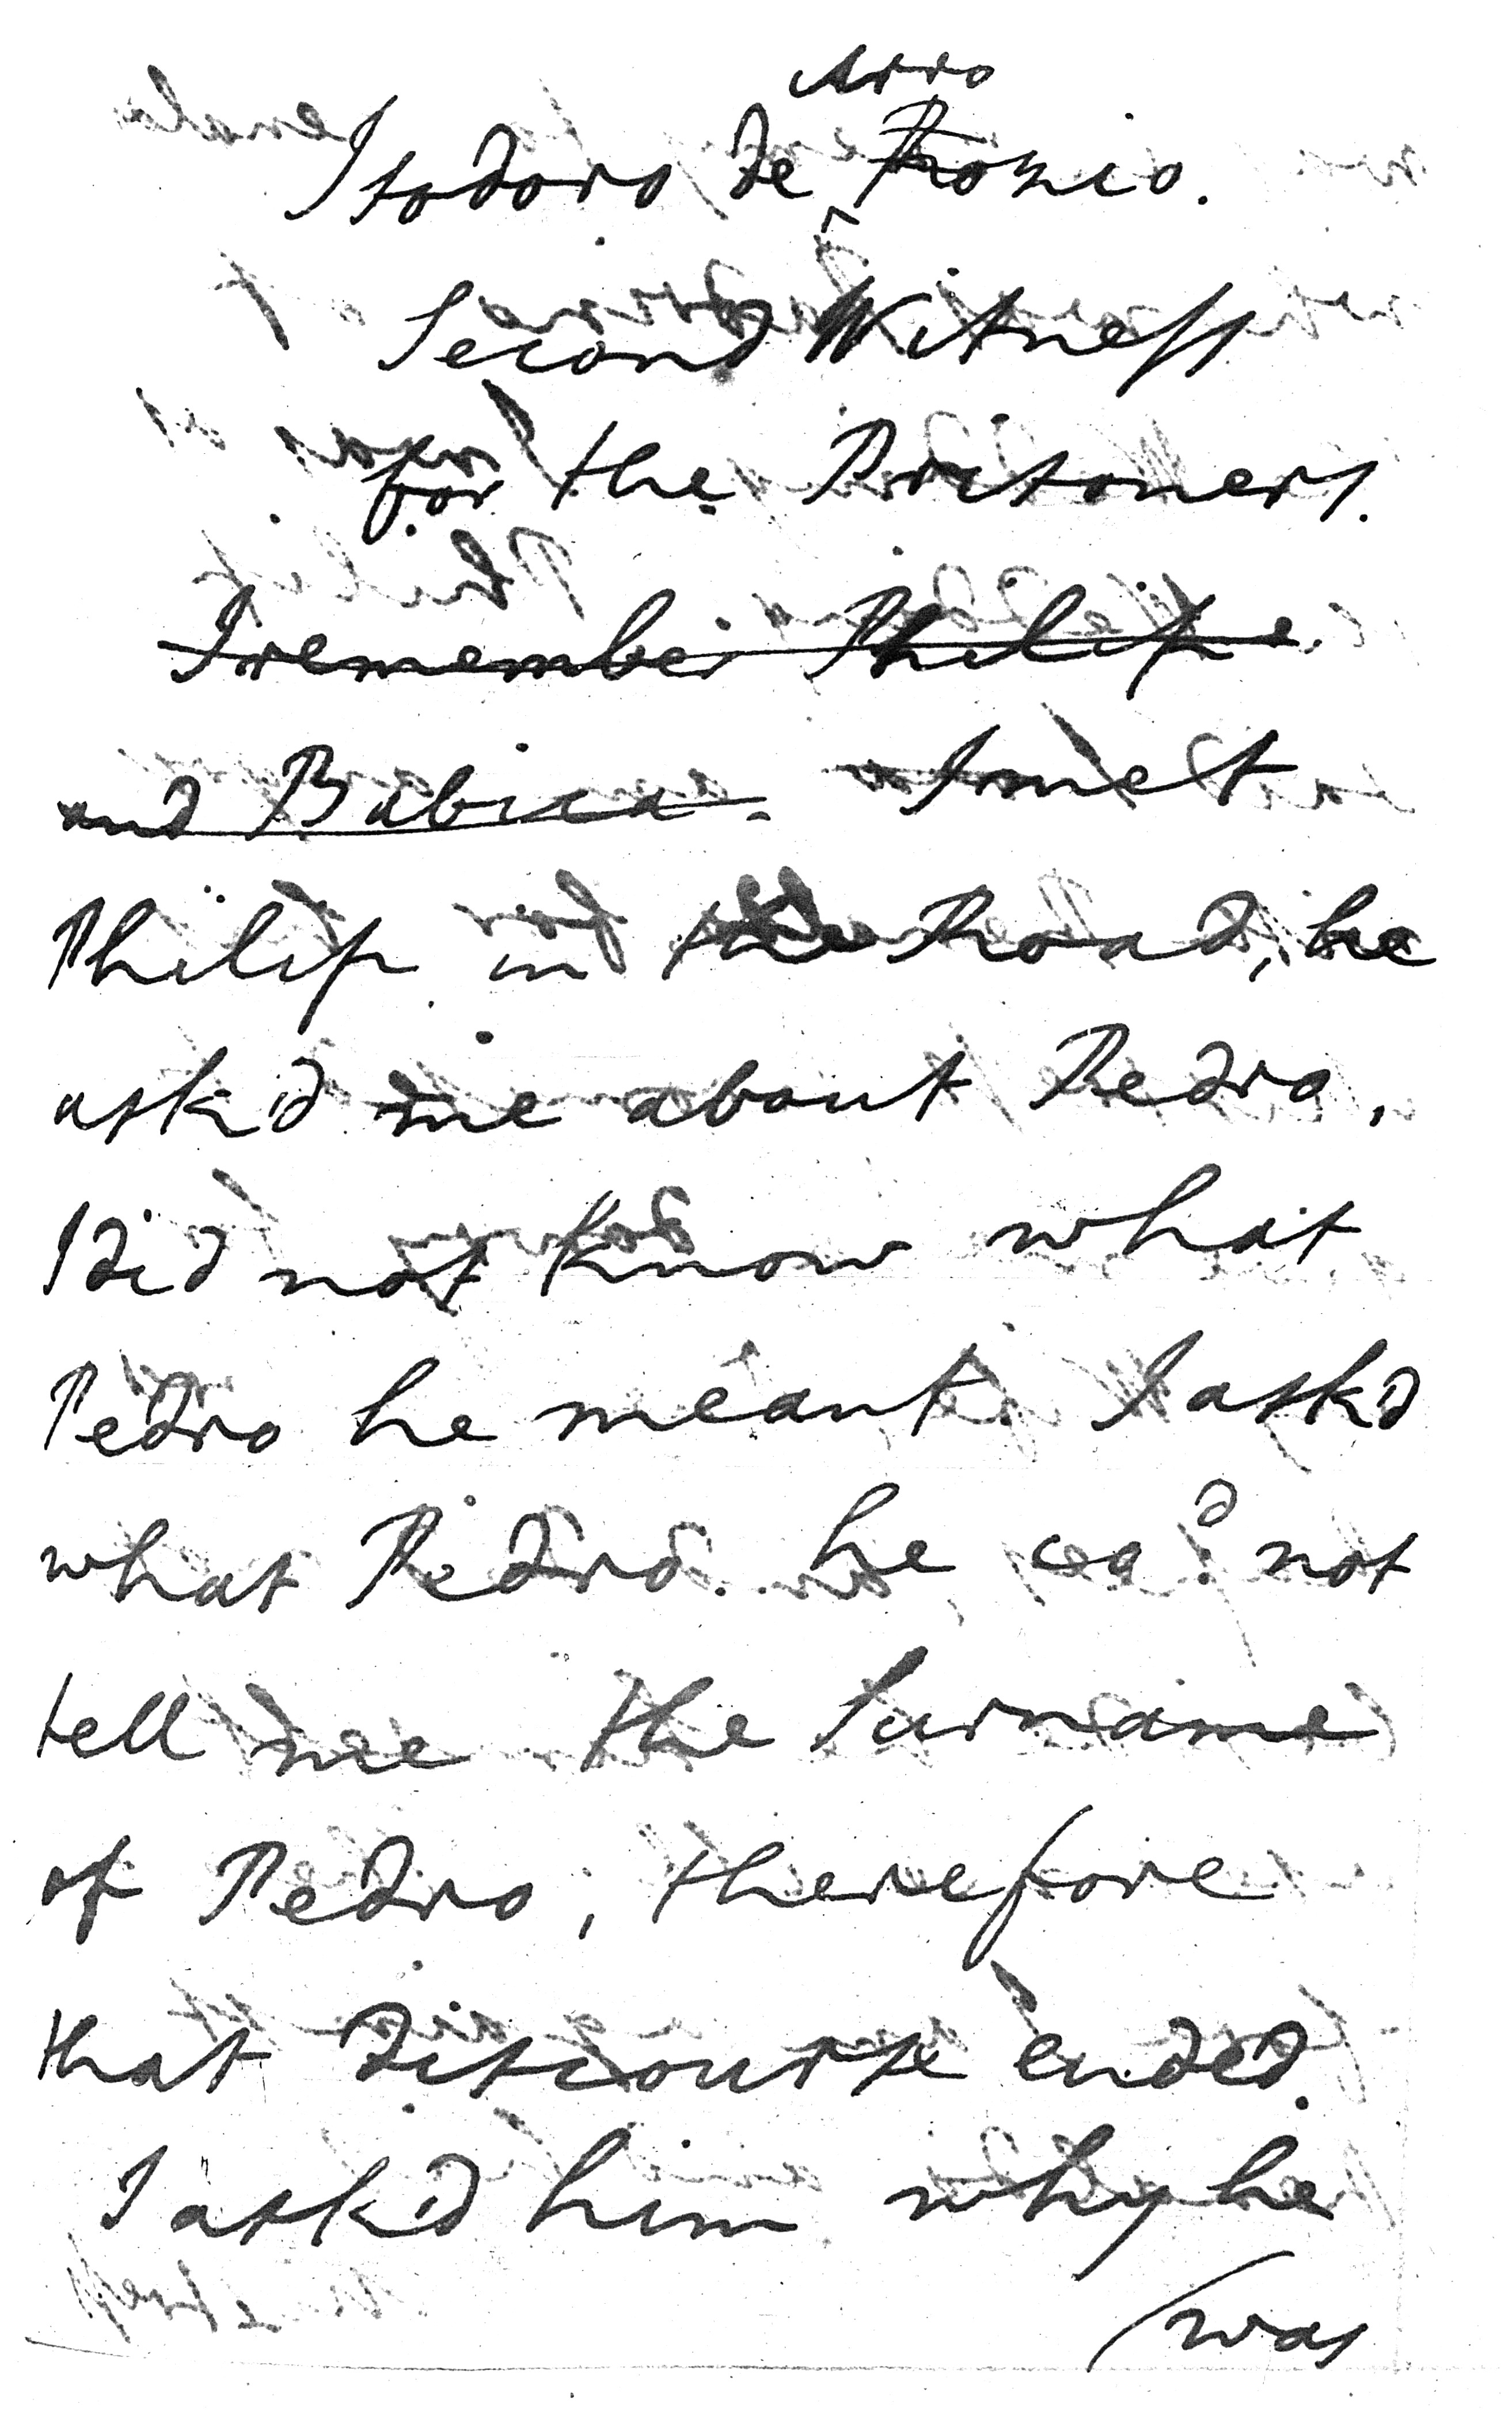 Arro
Isodoro de Ronzio.
Second Witness
for the Prisoners.
I remember Philip
and Babica. I met
Philip in the Road, he
ask'd me about Pedro,
I did not know what
Pedro he meant. I ask'd
what Pedro. he co.d not
tell me the Surname
of Pedro, therefore
that discourse ended.
I ask'd him why he
(was